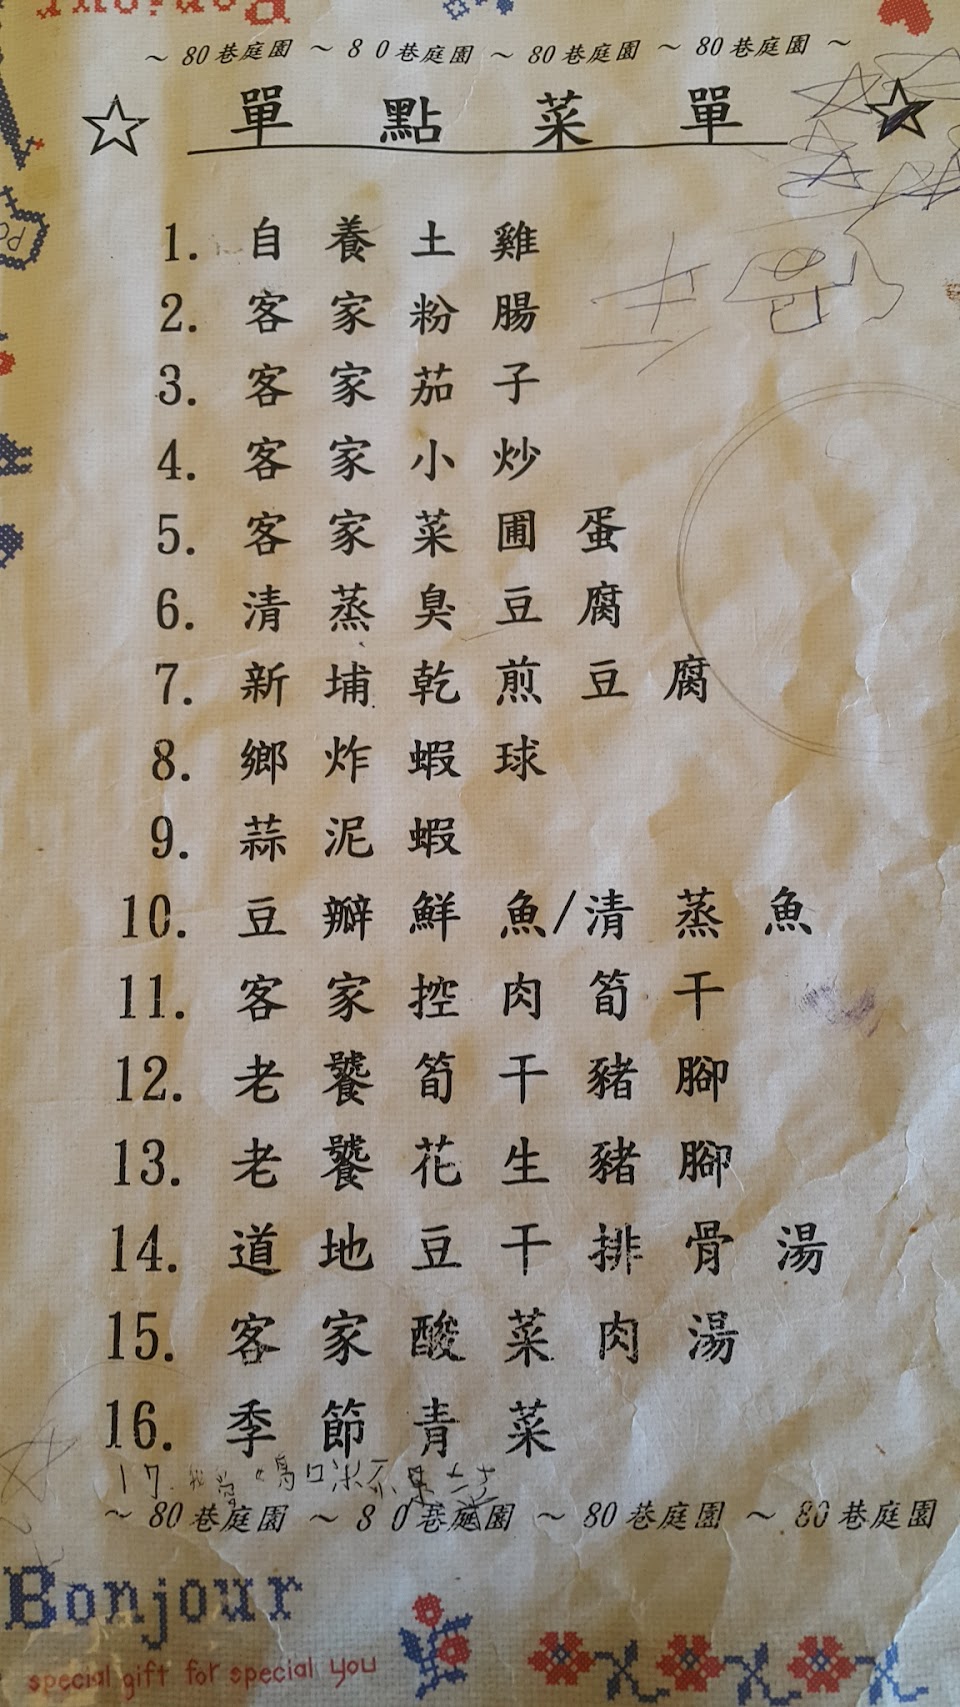 Bonjour
～ 80巷庭園 ～ 80巷庭園 ～ 80巷庭園 ～ 80巷庭園 ～
☆ 單點菜單 ☆
1. 自養土雞
2. 客家粉腸
3. 客家茄子
4. 客家小炒
5. 客家菜圃蛋
6. 清蒸臭豆腐
7. 新埔乾煎豆腐
8. 鄉炸蝦球
9. 蒜泥蝦
10. 豆瓣鮮魚/清蒸魚
11. 客家控肉筍干
12. 老饕筍干豬腳
13. 老饕花生豬腳
14. 道地豆干排骨湯
15. 客家酸菜肉湯
16. 季節青菜
17.
～ 80巷庭園 ～ 80巷庭園 ～ 80巷庭園 ～ 80巷庭園
Bonjour
special gift for special you